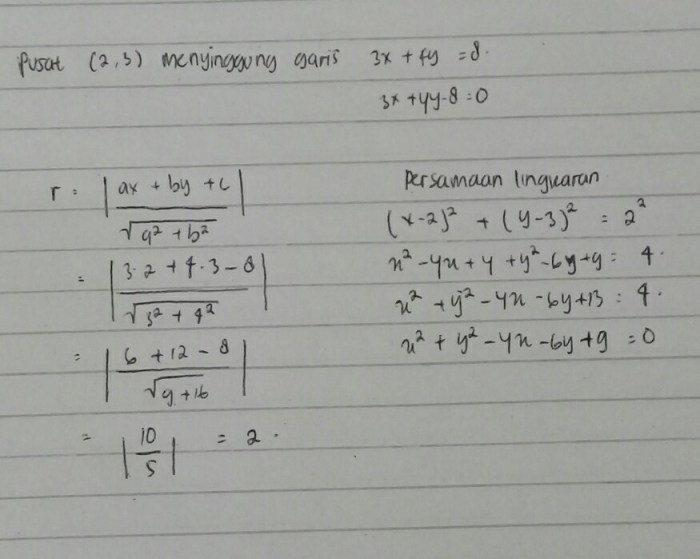 Pusat (2,3) menyinggung garis 3x + 4y = 8.
3x + 4y - 8 = 0
r = |ax + by + c / √a² + b²|
= |3·2 + 4·3 - 8 / √3² + 4²|
= |6 + 12 - 8 / √9 + 16|
= |10/5| = 2.
Persamaan lingkaran
(x-2)² + (y-3)² = 2²
x² - 4x + 4 + y² - 6y + 9 = 4.
x² + y² - 4x - 6y + 13 = 4.
x² + y² - 4x - 6y + 9 = 0